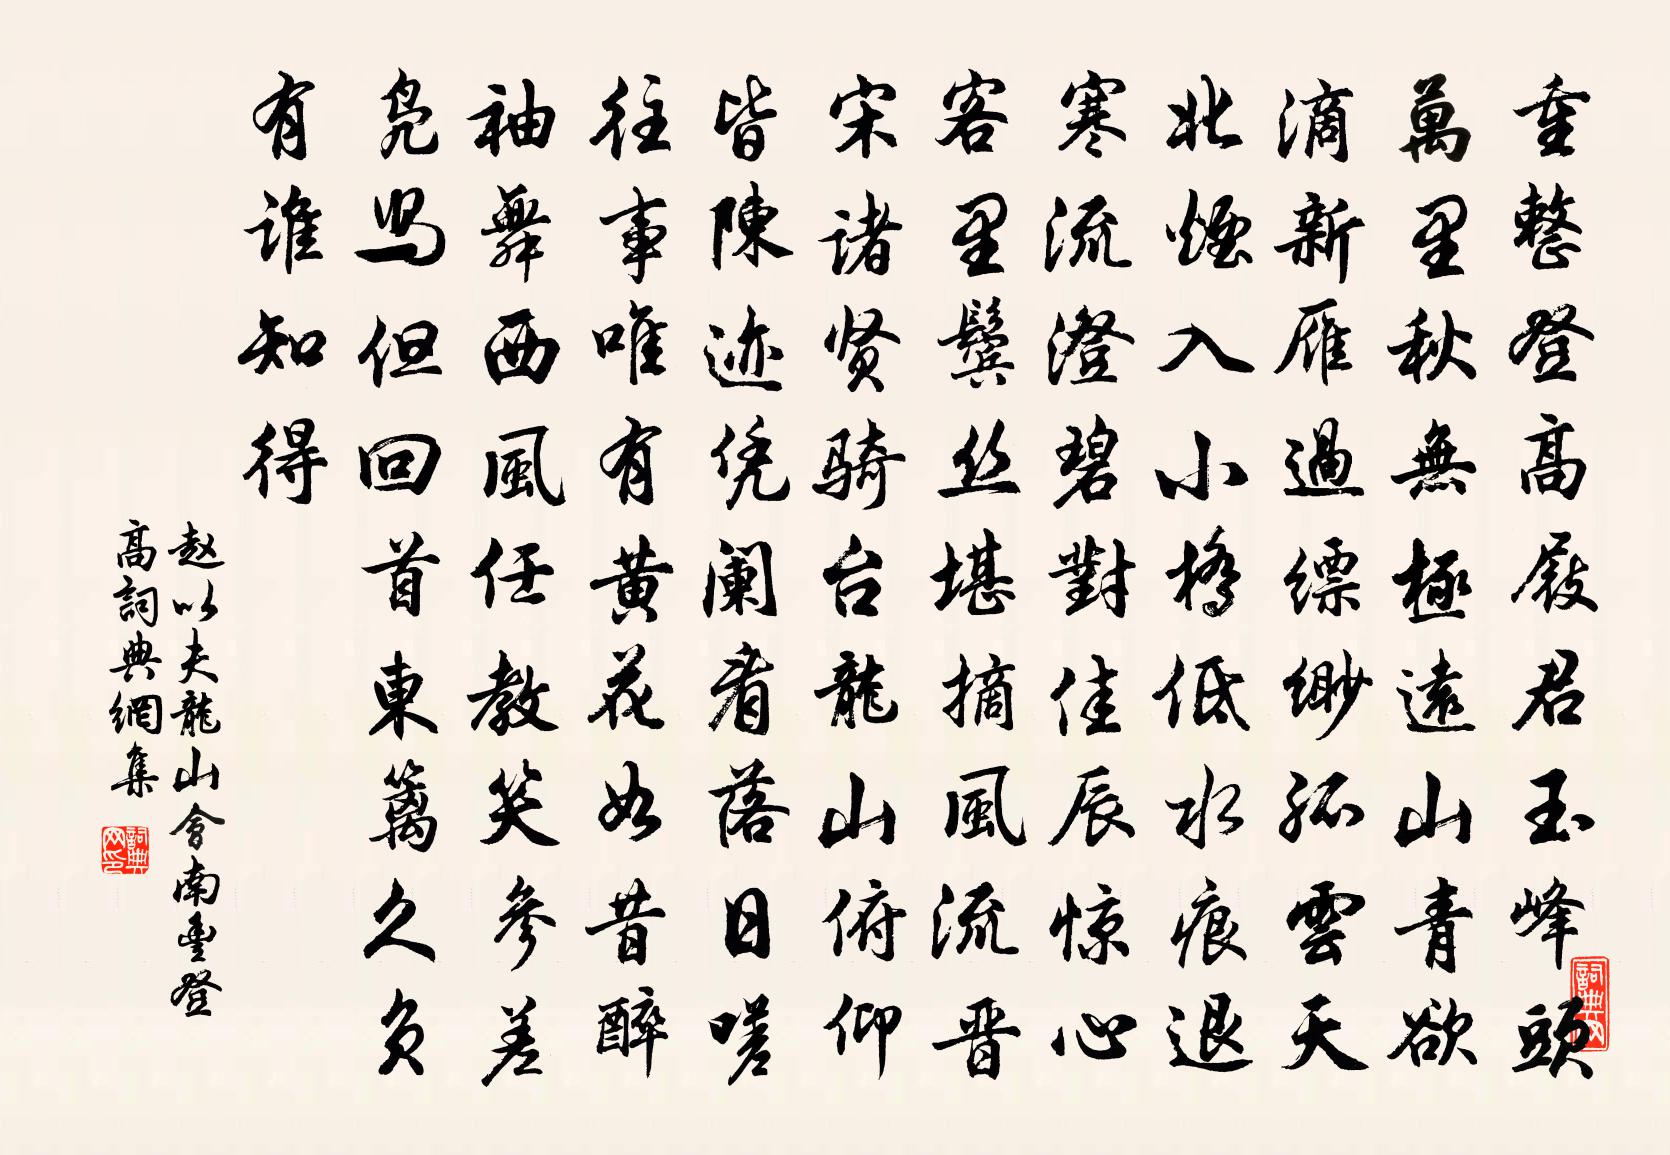 重整登高屐君玉峰頭
萬里秋無極遠山青欲
滴新雁過縹緲孤雲天
北煙入小橋低水痕退
寒流澄碧對佳辰惊心
客里鬓丝堪摘風流晋
宋诸贤骑台龍山俯仰
皆陳迹凭阑看落日嗟
往事唯有黄花如昔醉
袖舞西風任教笑參差
凫舄但回首東篱久负
有谁知得
赵以夫龍山會南豊登
高詞典網集